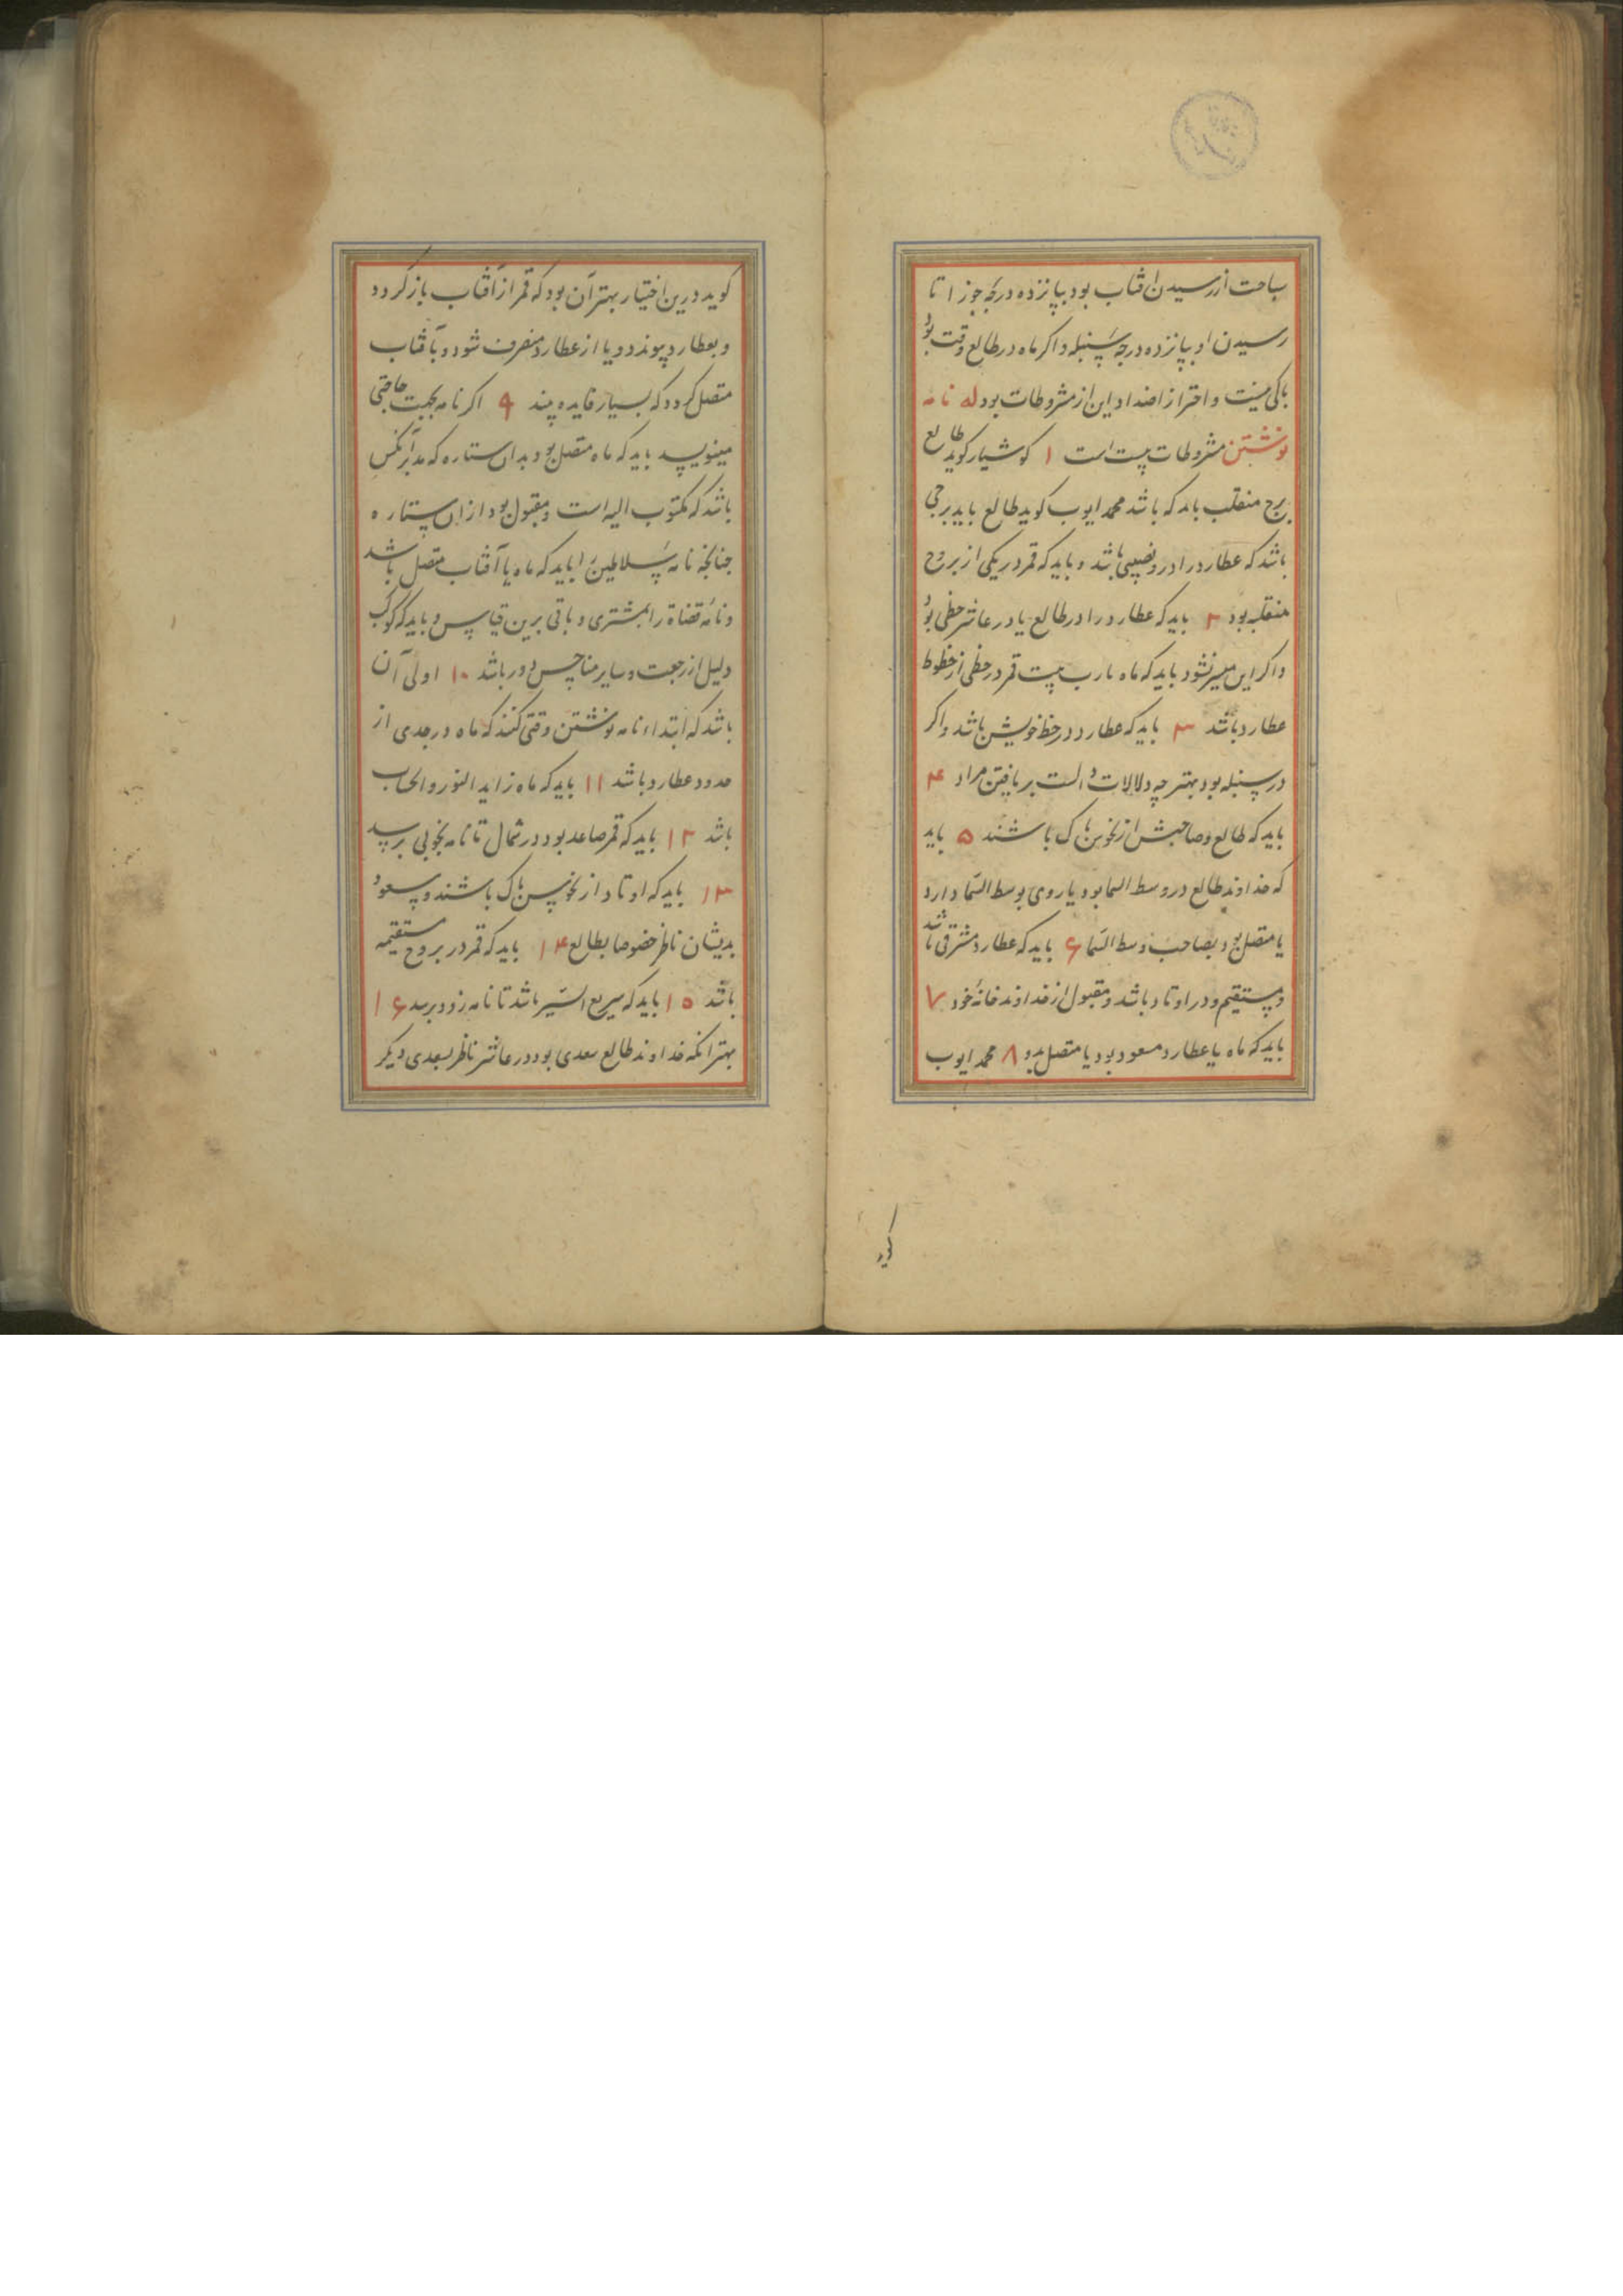 ساحت از رسیدن افتاب بود بپانزده درجه جوزا تا
رسیدن او بپانزده درجه سنبله و اکر ماه در طالع وقت بود
باکی نیست و احتراز از اضداد این از مشروطات بود له نامه
نوشتن مشروطات بیست است ۱ کوشیار کوید طالع
برج منقلب باید که باشد محمد ایوب کوید طالع باید برجی
باشد که عطارد را درو نصیبی باشد و باید که قمر در یکی از بروج
منقلبه بود ۲ باید که عطارد را در طالع یا در عاشر حظی بود
و اکر این میسر نشود باید که ماه یا رب بیت قمر در حظی از حظوظ
عطارد باشد ۳ باید که عطارد در حظ خویش باشد و اکر
در سنبله بود بهتر چه دلالات دالست بر یافتن مراد ۴
باید که طالع و صاحبش از نحوس پاک باشند ۵ باید
که خداوند طالع در وسط السما بود یا روی بوسط السما دارد
یا متصل بود بصاحب وسط السما ۶ باید که عطارد مشرقی باشد
و مستقیم و در اوتاد باشد و مقبول از خداوند خانه خود ۷
باید که ماه با عطارد مسعود بود یا متصل بدو ۸ محمد ایوب
کوید
کوید درین اختیار بهتر آن بود که قمر از آفتاب باز کردد
و بعطارد پیوندد و یا از عطارد منصرف شود و بآفتاب
متصل کردد که بسیار فایده بیند ۹ اکر نامه بجهت حاجتی
مینویسد باید که ماه متصل بود بدان ستاره که مدبر آنکس
باشد که مکتوب الیه است و مقبول بود ازان ستاره
جنانجه نامه سلاطین را باید که ماه با آفتاب متصل باشد
و نامه قضاة را بمشتری و باقی برین قیاس و باید که کوکب
دلیل از رجعت و سایر مناحس دور باشد ۱۰ اولی آن
باشد که ابتداء نامه نوشتن وقتی کنند که ماه در حدی از
حدود عطارد باشد ۱۱ باید که ماه زاید النور و الحساب
باشد ۱۲ باید که قمر صاعد بود در شمال تا نامه بخوبی برسد
۱۳ باید که اوتاد از نحوس پاک باشند و سعود
بدیشان ناظر خصوصا بطالع ۱۴ باید که قمر در بروج مستقیمه
باشد ۱۵ باید که سریع السیر باشد تا نامه زود برسد ۱۶
بهتر انکه خداوند طالع سعدی بود در عاشر ناظر بسعدی دیکر